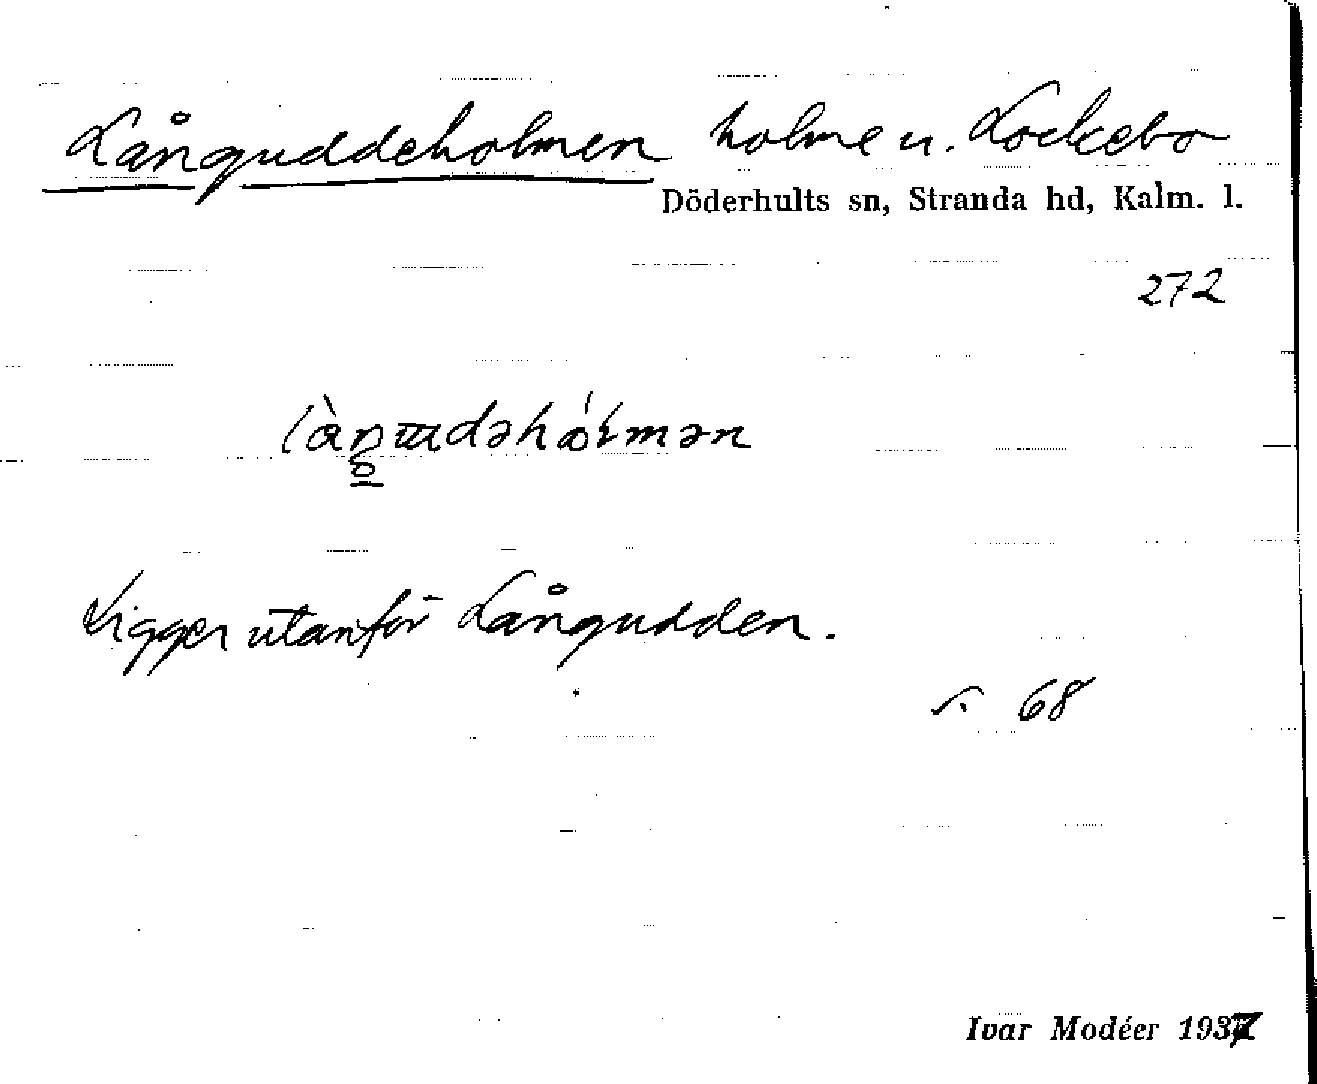 Långuddeholmen holme u. Lockebo
Döderhults sn, Stranda hd, Kalm. l.
272
Ligger utanför Långudden.
s. 68
Ivar Modéer 1937